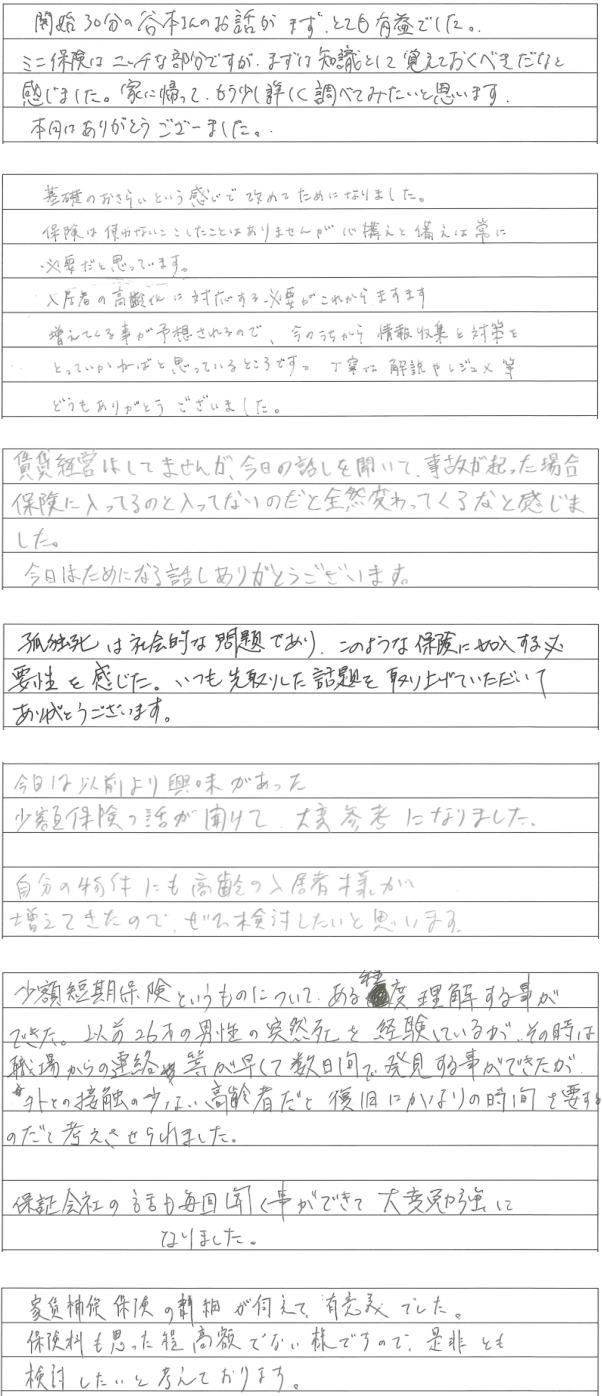 開始30分の谷本さんのお話がまず、とても有益でした。
ミニ保険はニッチな部分ですが、まずは知識として覚えておくべきだなと
感じました。家に帰って、もう少し詳しく調べてみたいと思います。
本日はありがとうございました。
基礎のおさらいという感じで改めてためになりました。
保険は使わないにこしたことはありませんが心構えと備えは常に
必要だと思っています。
入居者の高齢化に対応する必要がこれからますます
増えてくる事が予想されるので、今のうちから情報収集と対策を
とっていかねばと思っているところです。丁寧な解説やレジュメ等
どうもありがとうございました。
賃貸経営はしてませんが、今日の話しを聞いて、事故が起った場合
保険に入ってるのと入ってないのだと全然変わってくるなと感じま
した。
今日はためになる話しありがとうございます。
孤独死は社会的な問題であり、このような保険に加入する必
要性を感じた。いつも先取りした話題を取り上げていただいて
ありがとうございます。
今日は以前より興味があった
少額保険の話が聞けて、大変参考になりました。
自分の物件にも高齢の入居者様が
増えてきたので、ぜひ検討したいと思います。
少額短期保険というものについて、ある程度理解する事が
できた。以前26才の男性の突然死を経験しているが、その時は
職場からの連絡等が早くて数日間で発見する事ができたが、
外との接触の少ない高齢者だと復旧にかなりの時間を要する
のだと考えさせられました。
保証会社の話も毎回聞く事ができて大変勉強に
なりました。
家賃補償保険の詳細が伺えて、有意義でした。
保険料も思った程高額でない様ですので、是非とも
検討したいと考えております。